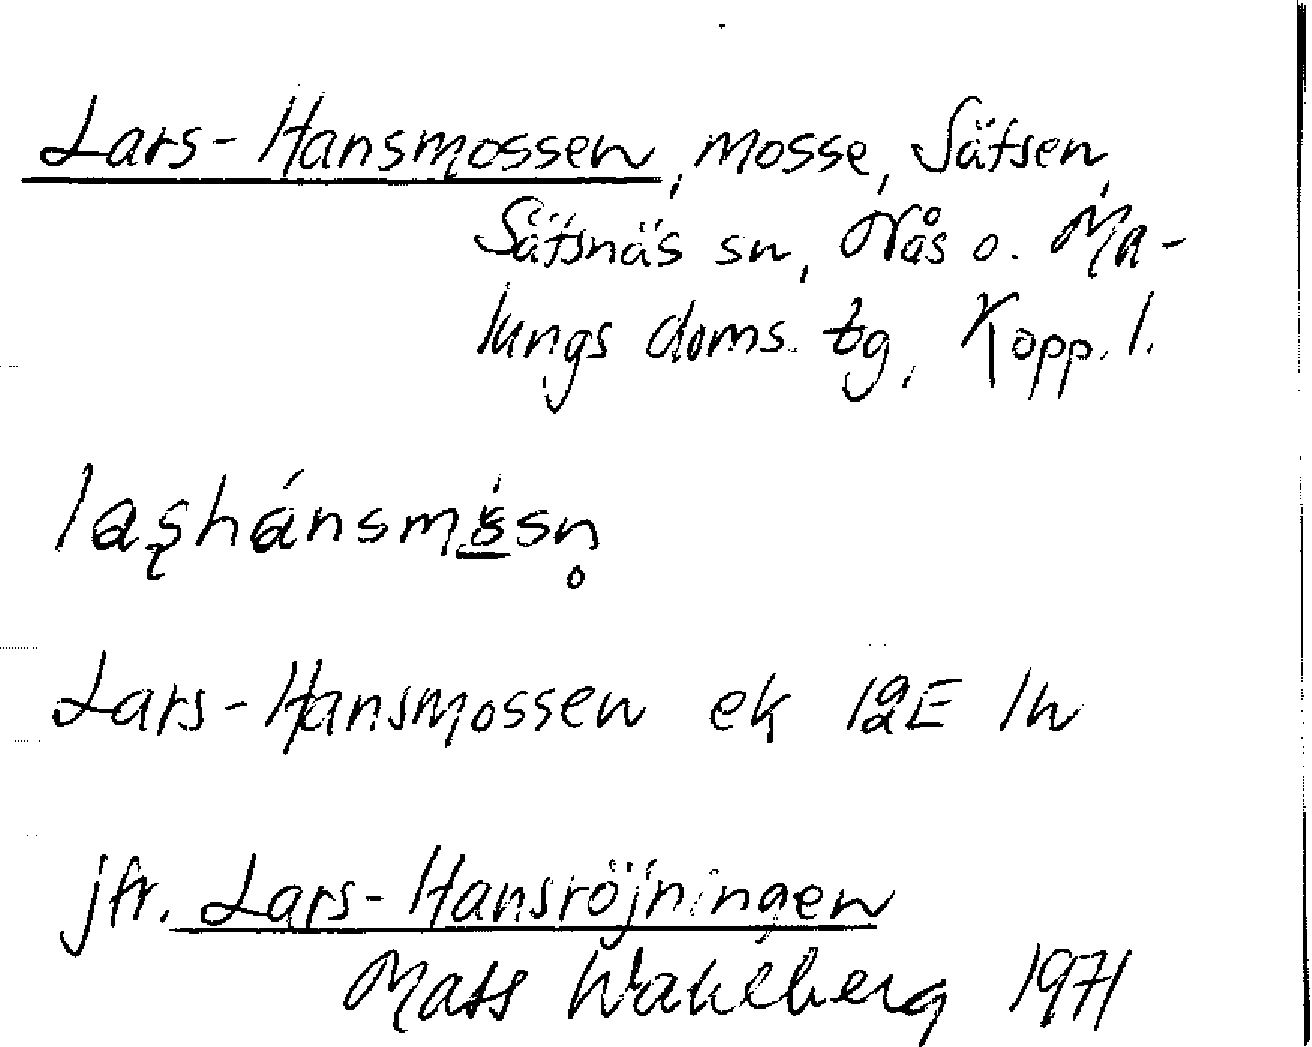 Lars-Hansmossen, mosse, Sätsen,
Sätsnäs sn, Nås o. Ma-
lungs doms. tg, Kopp. l.
Lars-Hansmossen ek 12E 1h
jfr. Lars-Hansröjningen
Mats Wahlberg 1971